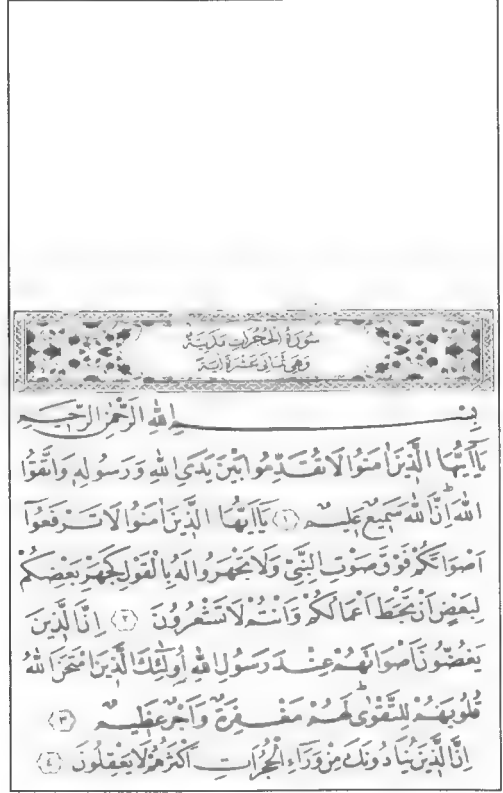 سُورَةُ الْحُجُرَاتِ مَدَنِيَّةٌ
وَهِيَ ثَمَانِيَ عَشْرَةَ اٰيَةً
بِسْمِ اللهِ الرَّحْمٰنِ الرَّحِيمِ
يَٓا اَيُّهَا الَّذِينَ اٰمَنُوا لَا تُقَدِّمُوا بَيْنَ يَدَيِ اللهِ وَرَسُولِهِ وَاتَّقُوا
اللهَ اِنَّ اللهَ سَمِيعٌ عَلِيمٌ ﴿١﴾ يَٓا اَيُّهَا الَّذِينَ اٰمَنُوا لَا تَرْفَعُٓوا
اَصْوَاتَكُمْ فَوْقَ صَوْتِ النَّبِيِّ وَلَا تَجْهَرُوا لَهُ بِالْقَوْلِ كَجَهْرِ بَعْضِكُمْ
لِبَعْضٍ اَنْ تَحْبَطَ اَعْمَالُكُمْ وَاَنْتُمْ لَا تَشْعُرُونَ ﴿٢﴾ اِنَّ الَّذِينَ
يَغُضُّونَ اَصْوَاتَهُمْ عِنْدَ رَسُولِ اللهِ اُولٰٓئِكَ الَّذِينَ امْتَحَنَ اللهُ
قُلُوبَهُمْ لِلتَّقْوٰى لَهُمْ مَغْفِرَةٌ وَاَجْرٌ عَظِيمٌ ﴿٣﴾
اِنَّ الَّذِينَ يُنَادُونَكَ مِنْ وَرَٓاءِ الْحُجُرَاتِ اَكْثَرُهُمْ لَا يَعْقِلُونَ ﴿٤﴾